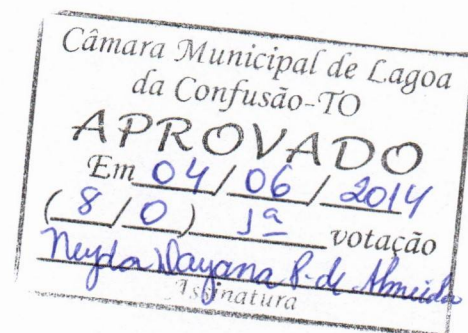 Câmara Municipal de Lagoa
da Confusão-TO
APROVADO
Em 04/06/2014
(8/0) 1ª votação
Neyda Dayana P. de Almeida
Assinatura